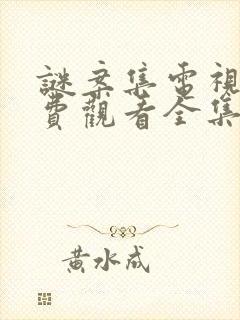 謎案集電視
費觀看全集
黃水成